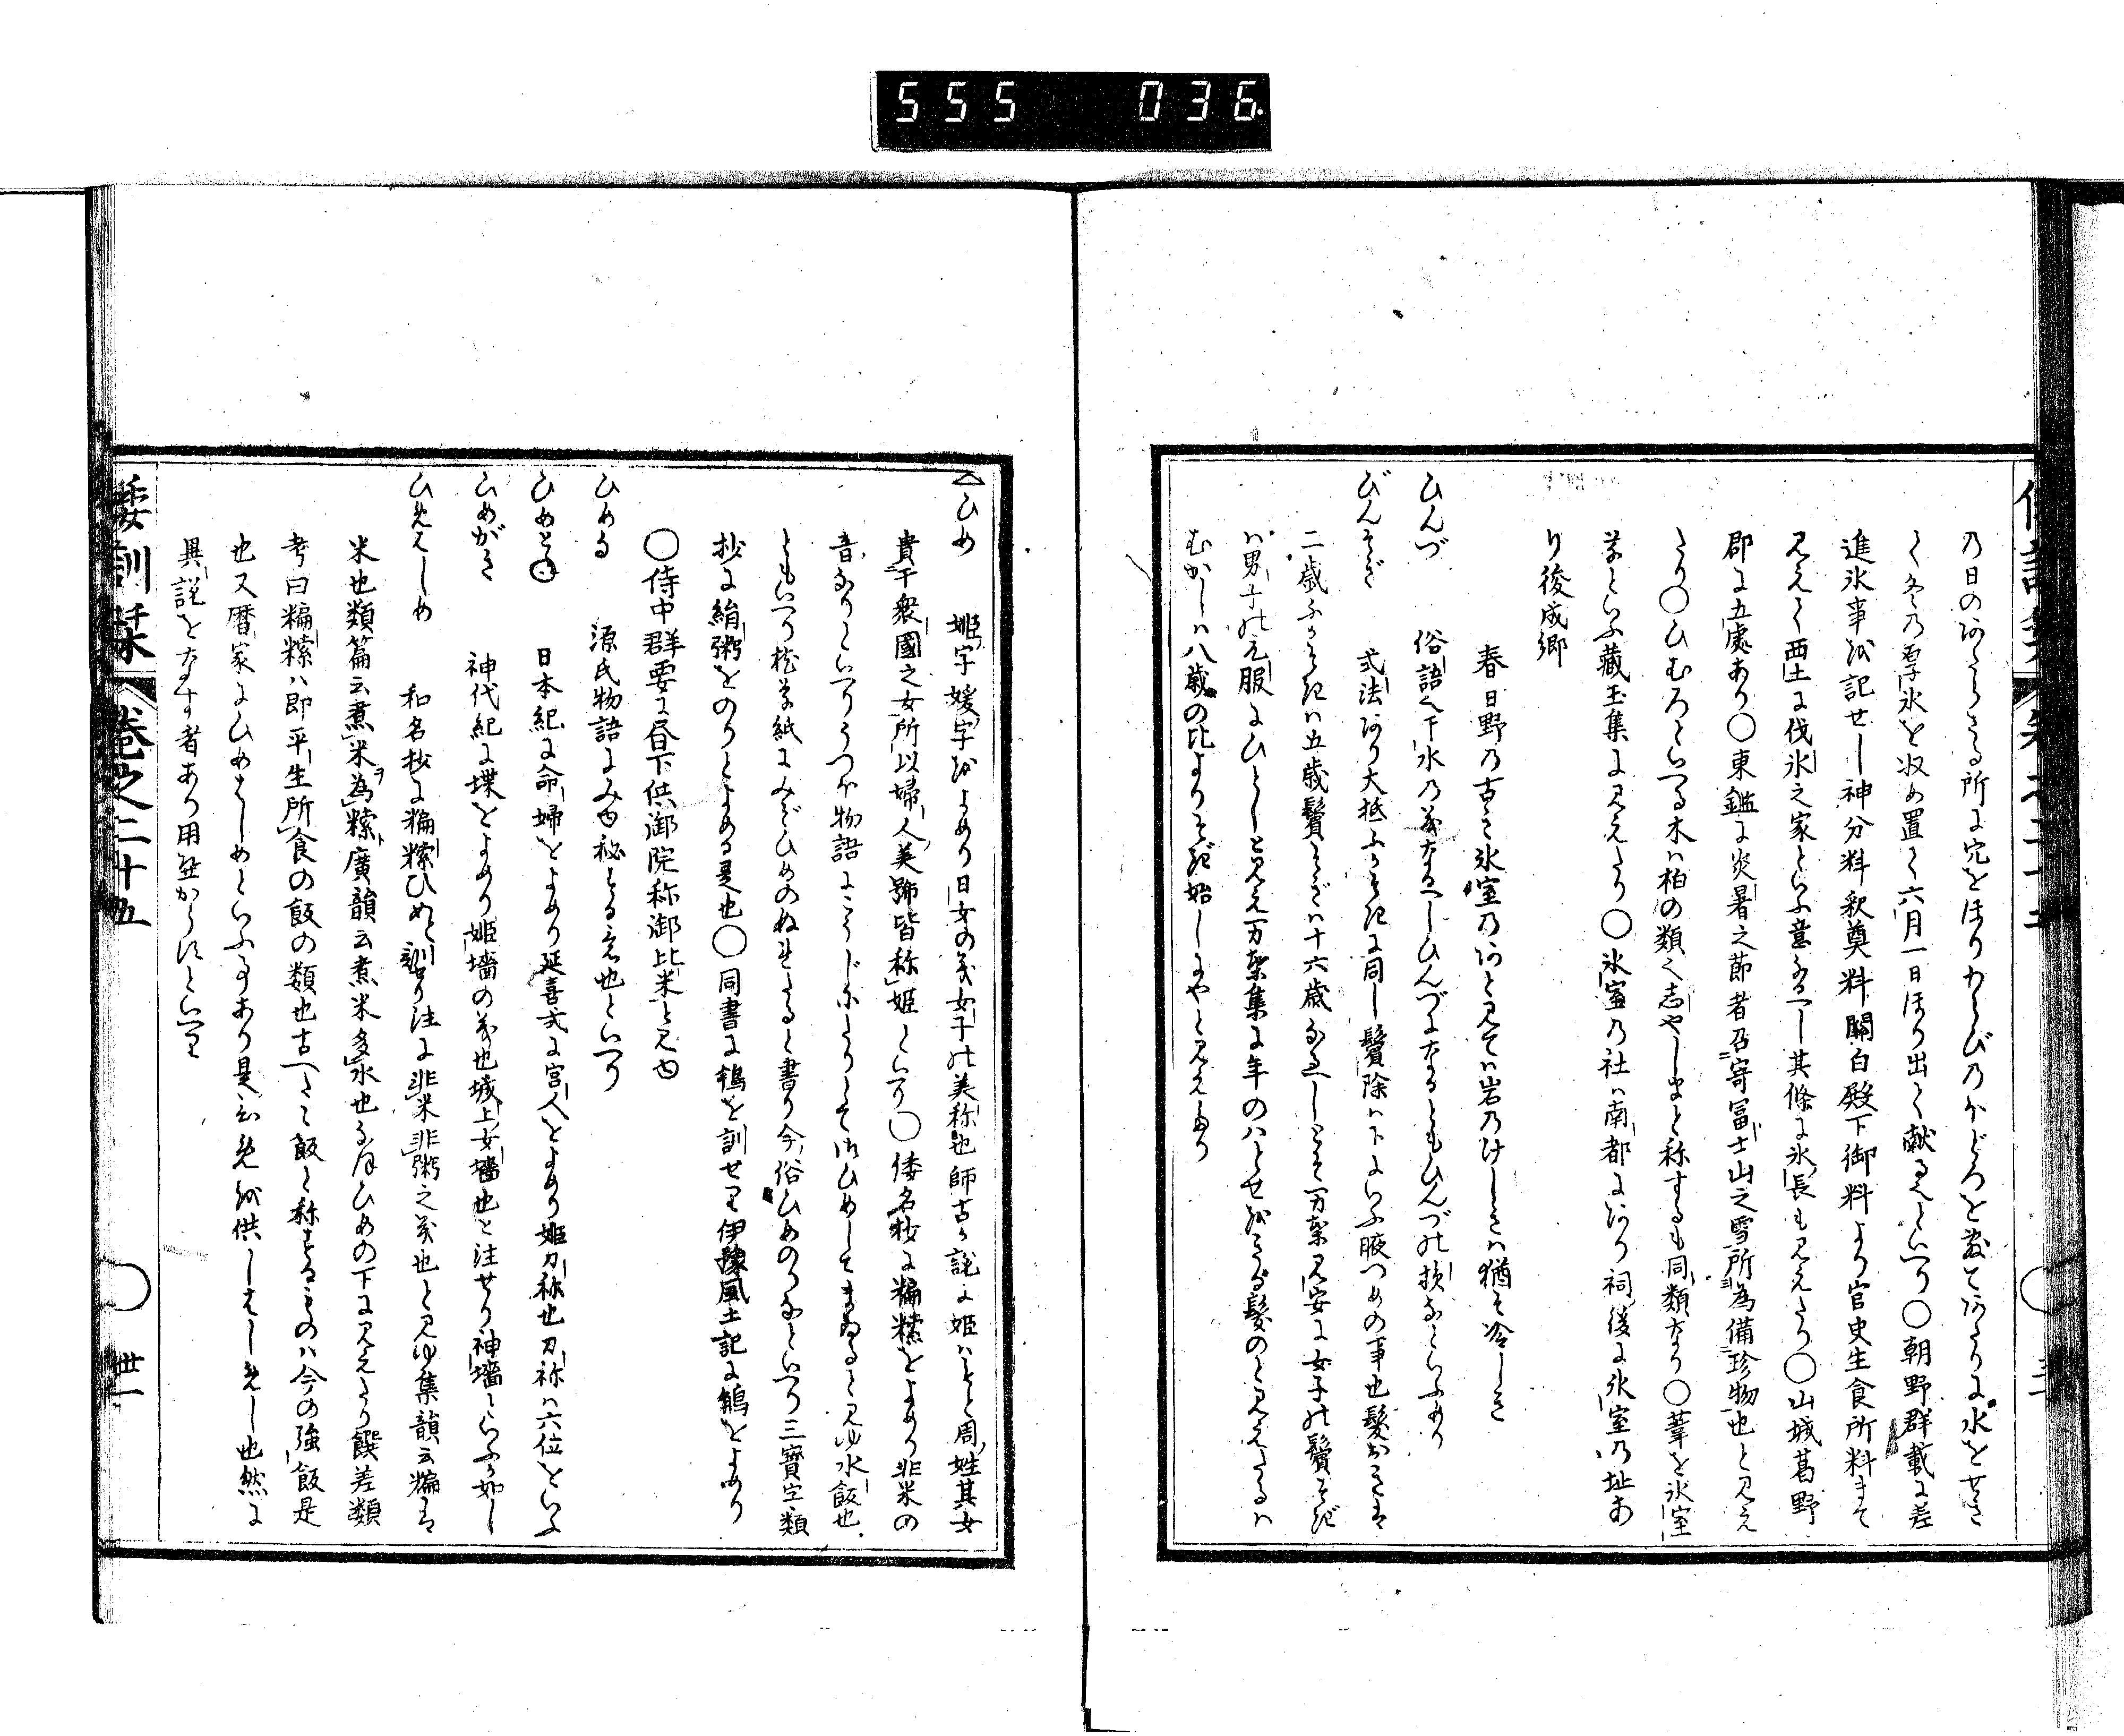 555 036
乃日のあたらざる所に穴をほりわらびのほどろを敷てあたりに水をせき
て冬乃厚氷を収め置て六月一日ほり出て献るといへり○朝野群載に差
進氷事を記せし神分料釈奠料關白殿下御料より官史生食所料まて
見えて西土に伐氷之家といふ意なるへし其條に氷長も見えたり○山城葛野
郡に五處あり○東鑑に炎暑之節者召寄冨士山之雪所為備珍物也と見え
たり○ひむろといへる木ハ柏の類也志やしまと称するも同類なり○葦を氷室
草といふ藏玉集に見えたり○氷室乃社ハ南都にあり祠後に氷室乃址あ
り後成卿
春日野乃古き氷室乃あと見てハ岩乃けしきハ猶そ冷しき
ひんづ　俗語也下水乃義なるへしひんづになるともひんづの損なといふめり
びんそぎ　式法あり大抵ふかそぎに同し鬢除ハ下にいふ腋つめの事也髪おきハ
二歳ふかそぎハ五歳鬢そぎハ十六歳なるへしとそ万葉見安に女子の鬢そぎ
ハ男子の元服にひとしと見え万葉集に年の八とせをきる髪のと見えたるハ
むかしハ八歳の比よりそぎ始しにやと見えたり
△ひめ　姫字媛字をよめり日女の義女子の美称也師古か説に姫ハもと周姓其女
貴于衆國之女所以婦人美號皆称姫といへり○倭名抄に糄䊦をよめり非米の
音なりといへりうつほ物語にこうじにたりとて御ひめしてまゐると見ゆ水飯也
ともいへり枕草紙にみぞひめのぬれたると書り今俗ひめのりなといへり三寳空類
抄に絹粥をのりとよめる是也○同書に鵯を訓せり伊豫風土記に鵤をよめり
○侍中群要に昼下供御院称御比米と見ゆ
ひめる　源氏物語にみゆ秘する意也といへり
ひめとね　日本紀に命婦をよめり延喜式に宮人をよめり姫刀祢也刀祢ハ六位をいふ
ひめがき　神代紀に堞をよめり姫墻の義也城上女墻也と注せり神墻といふか如し
ひめはしめ　和名抄に糄䊦ひめと訓り注に非米非粥之義也と見ゆ集韻云糄ハ
米也類篇云煮米為䊦廣韻云煮米多水也なほひめの下に見えたり饌差類
考曰糄䊦ハ即平生所食の飯の類也古へたゝ飯と称するものハ今の強飯是
也又暦家にひめはしめといふ事あり是ひめを供しはしめし也然に
異説をなす者あり用へからすといへり
倭訓栞　巻之二十五　○　丗一